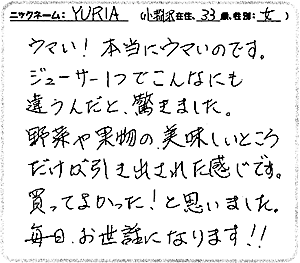 ニックネーム: YURIA (小金井市在住、33歳、性別:女)
ウマい！本当にウマいのです。
ジューサー1つでこんなにも
違うんだと、驚きました。
野菜や果物の、美味しいところ
だけが引き出された感じです。
買ってよかった！と思いました。
毎日、お世話になります!!